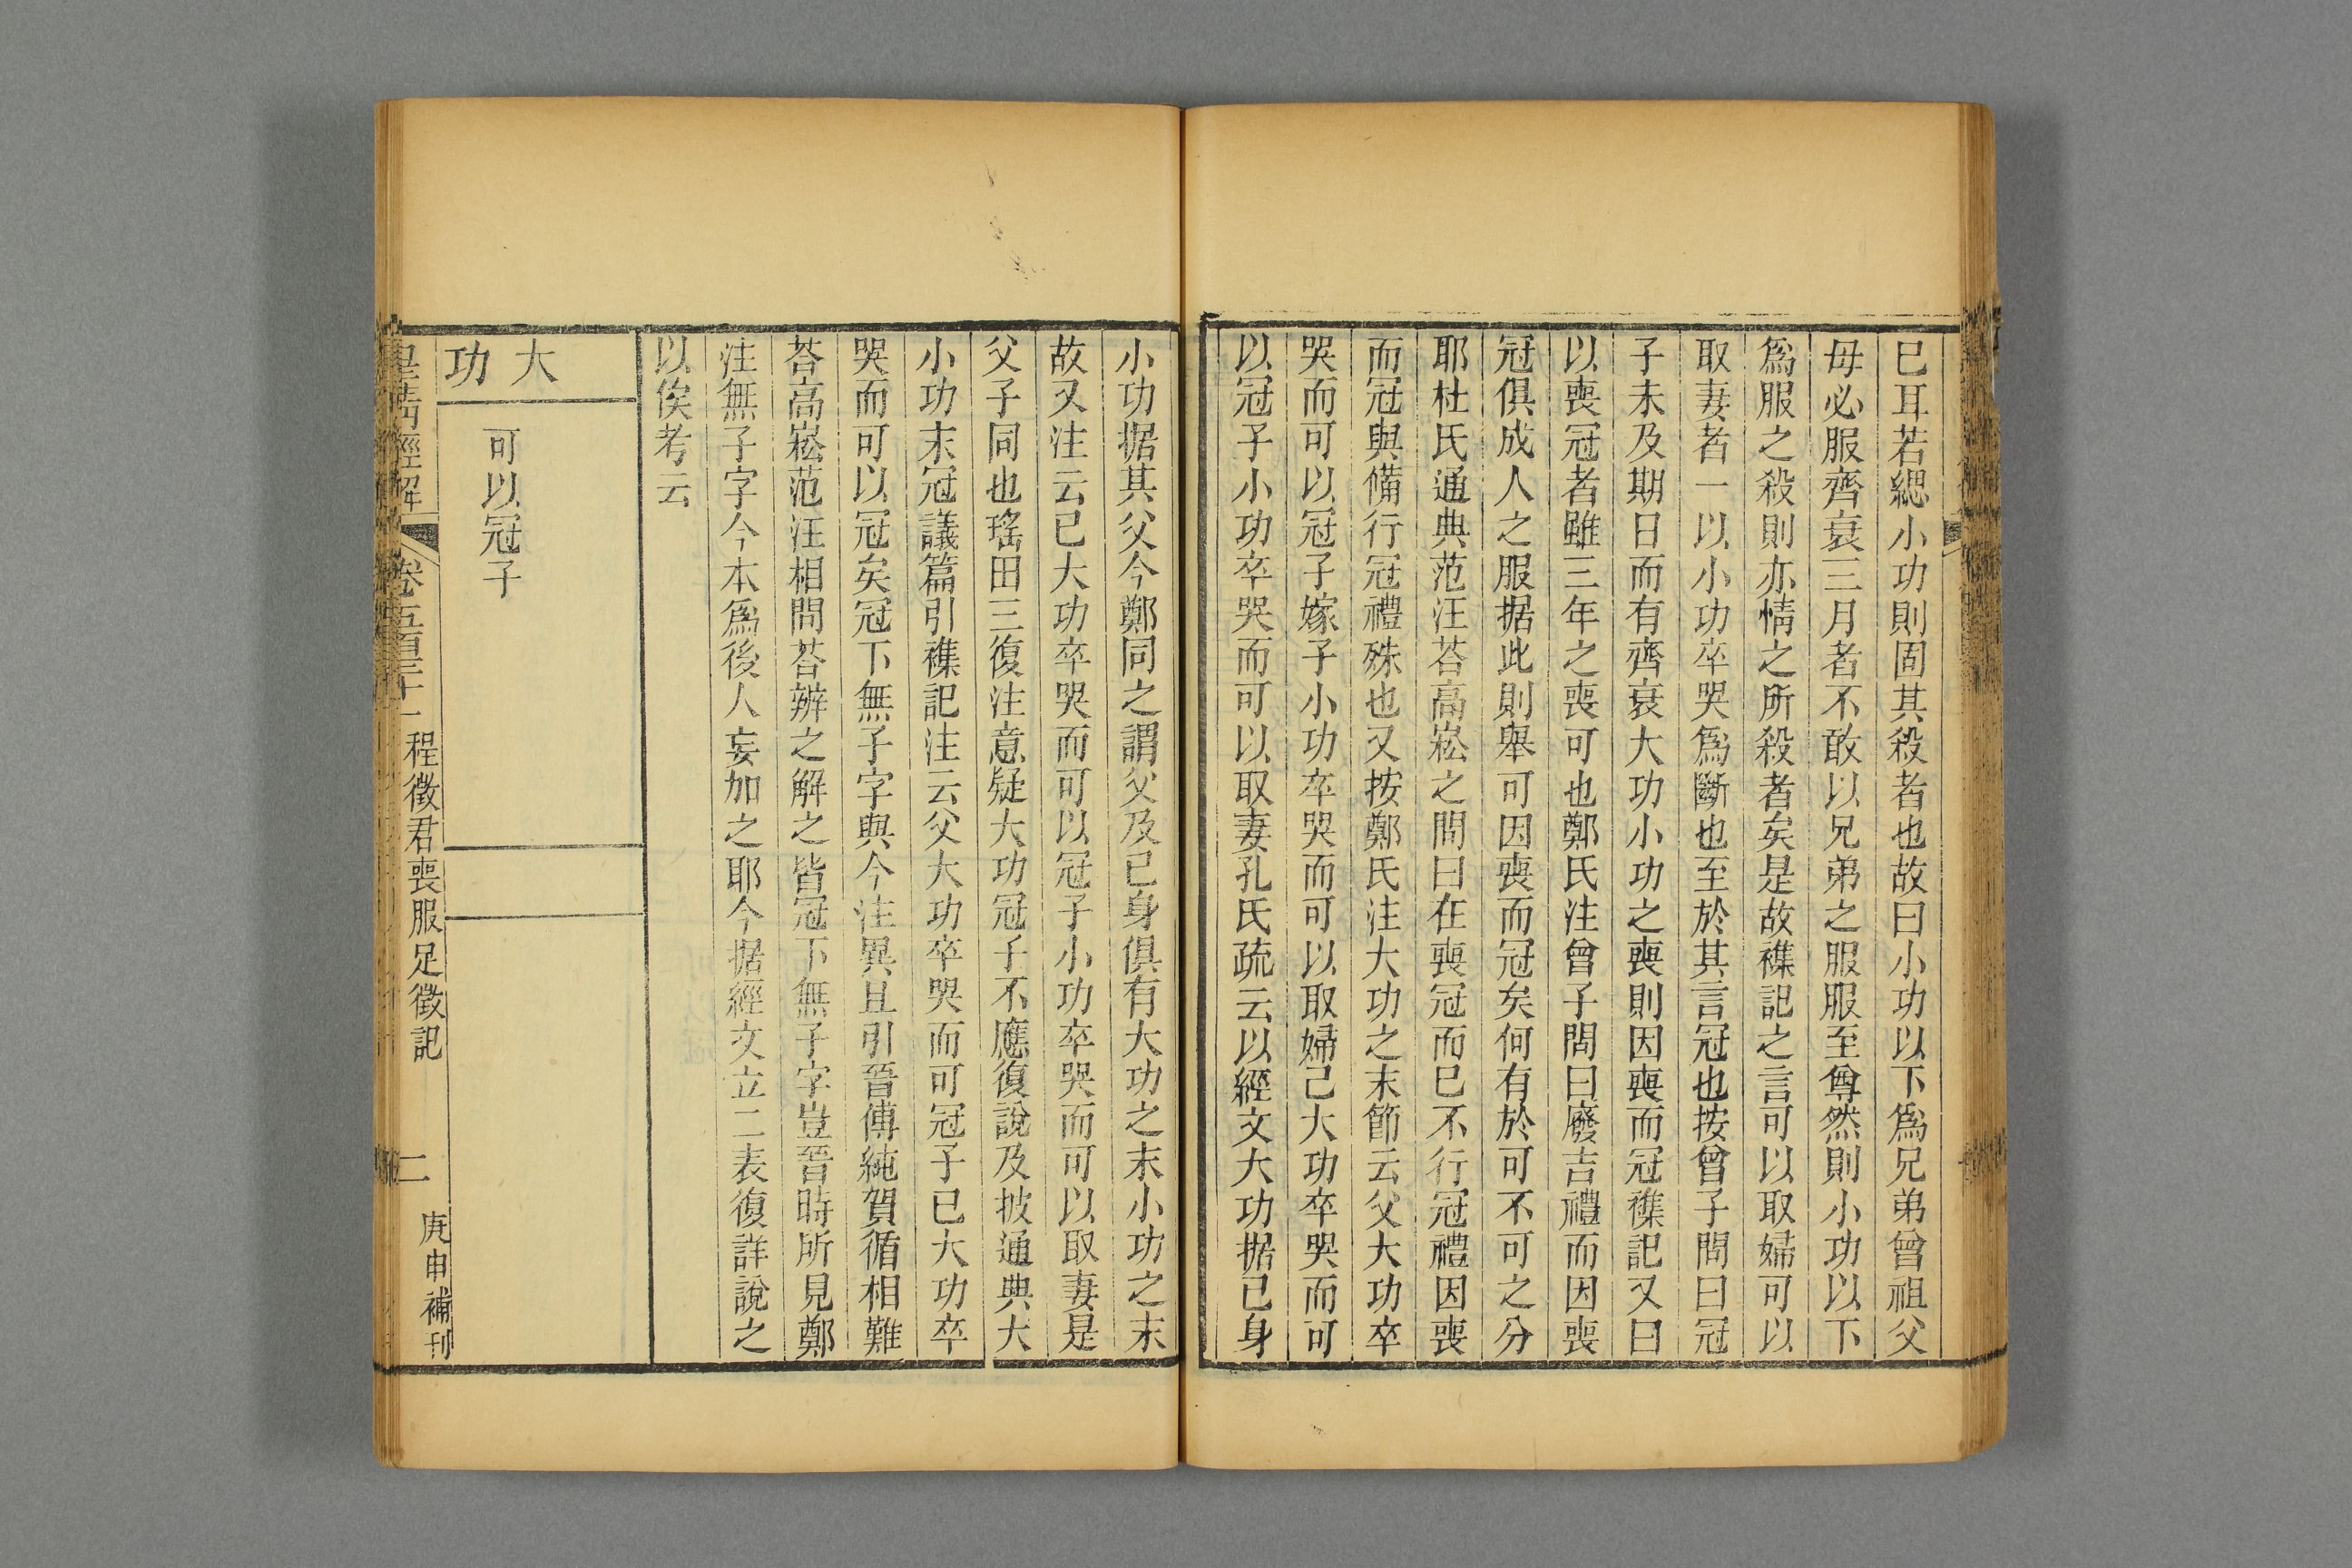 已耳若緦小功則固其殺者也故曰小功以下爲兄弟曾祖父
母必服齊衰三月者不敢以兄弟之服服至尊然則小功以下
爲服之殺則亦情之所殺者矣是故襍記之言可以取婦可以
取妻者一以小功卒哭爲斷也至於其言冠也按曾子問曰冠
子未及期日而有齊衰大功小功之喪則因喪而冠襍記又曰
以喪冠者雖三年之喪可也鄭氏注曾子問曰廢吉禮而因喪
冠俱成人之服据此則舉可因喪而冠矣何有於可不可之分
耶杜氏通典范汪荅高崧之問曰在喪冠而已不行冠禮因喪
而冠與備行冠禮殊也又按鄭氏注大功之末節云父大功卒
哭而可以冠子嫁子小功卒哭而可以取婦己大功卒哭而可
以冠子小功卒哭而可以取妻孔氏疏云以經文大功据己身
小功据其父今鄭同之謂父及己身俱有大功之末小功之末
故又注云已大功卒哭而可以冠子小功卒哭而可以取妻是
父子同也瑤田三復注意疑大功冠子不應復說及披通典大
小功末冠議篇引襍記注云父大功卒哭而可冠子已大功卒
哭而可以冠矣冠下無子字與今注異且引晉傅純賀循相難
荅高崧范汪相問荅辨之解之皆冠下無子字豈晉時所見鄭
注無子字今本爲後人妄加之耶今据經文立二表復詳說之
以俟考云
大功
可以冠子
皇淸經解 卷五百三十一 程徵君喪服足徵記 二 庚申補刊